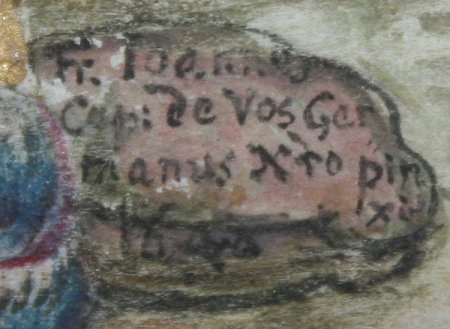 Fr. Ioannes
Cap: de Vos Ger
manus Xro pin
xit